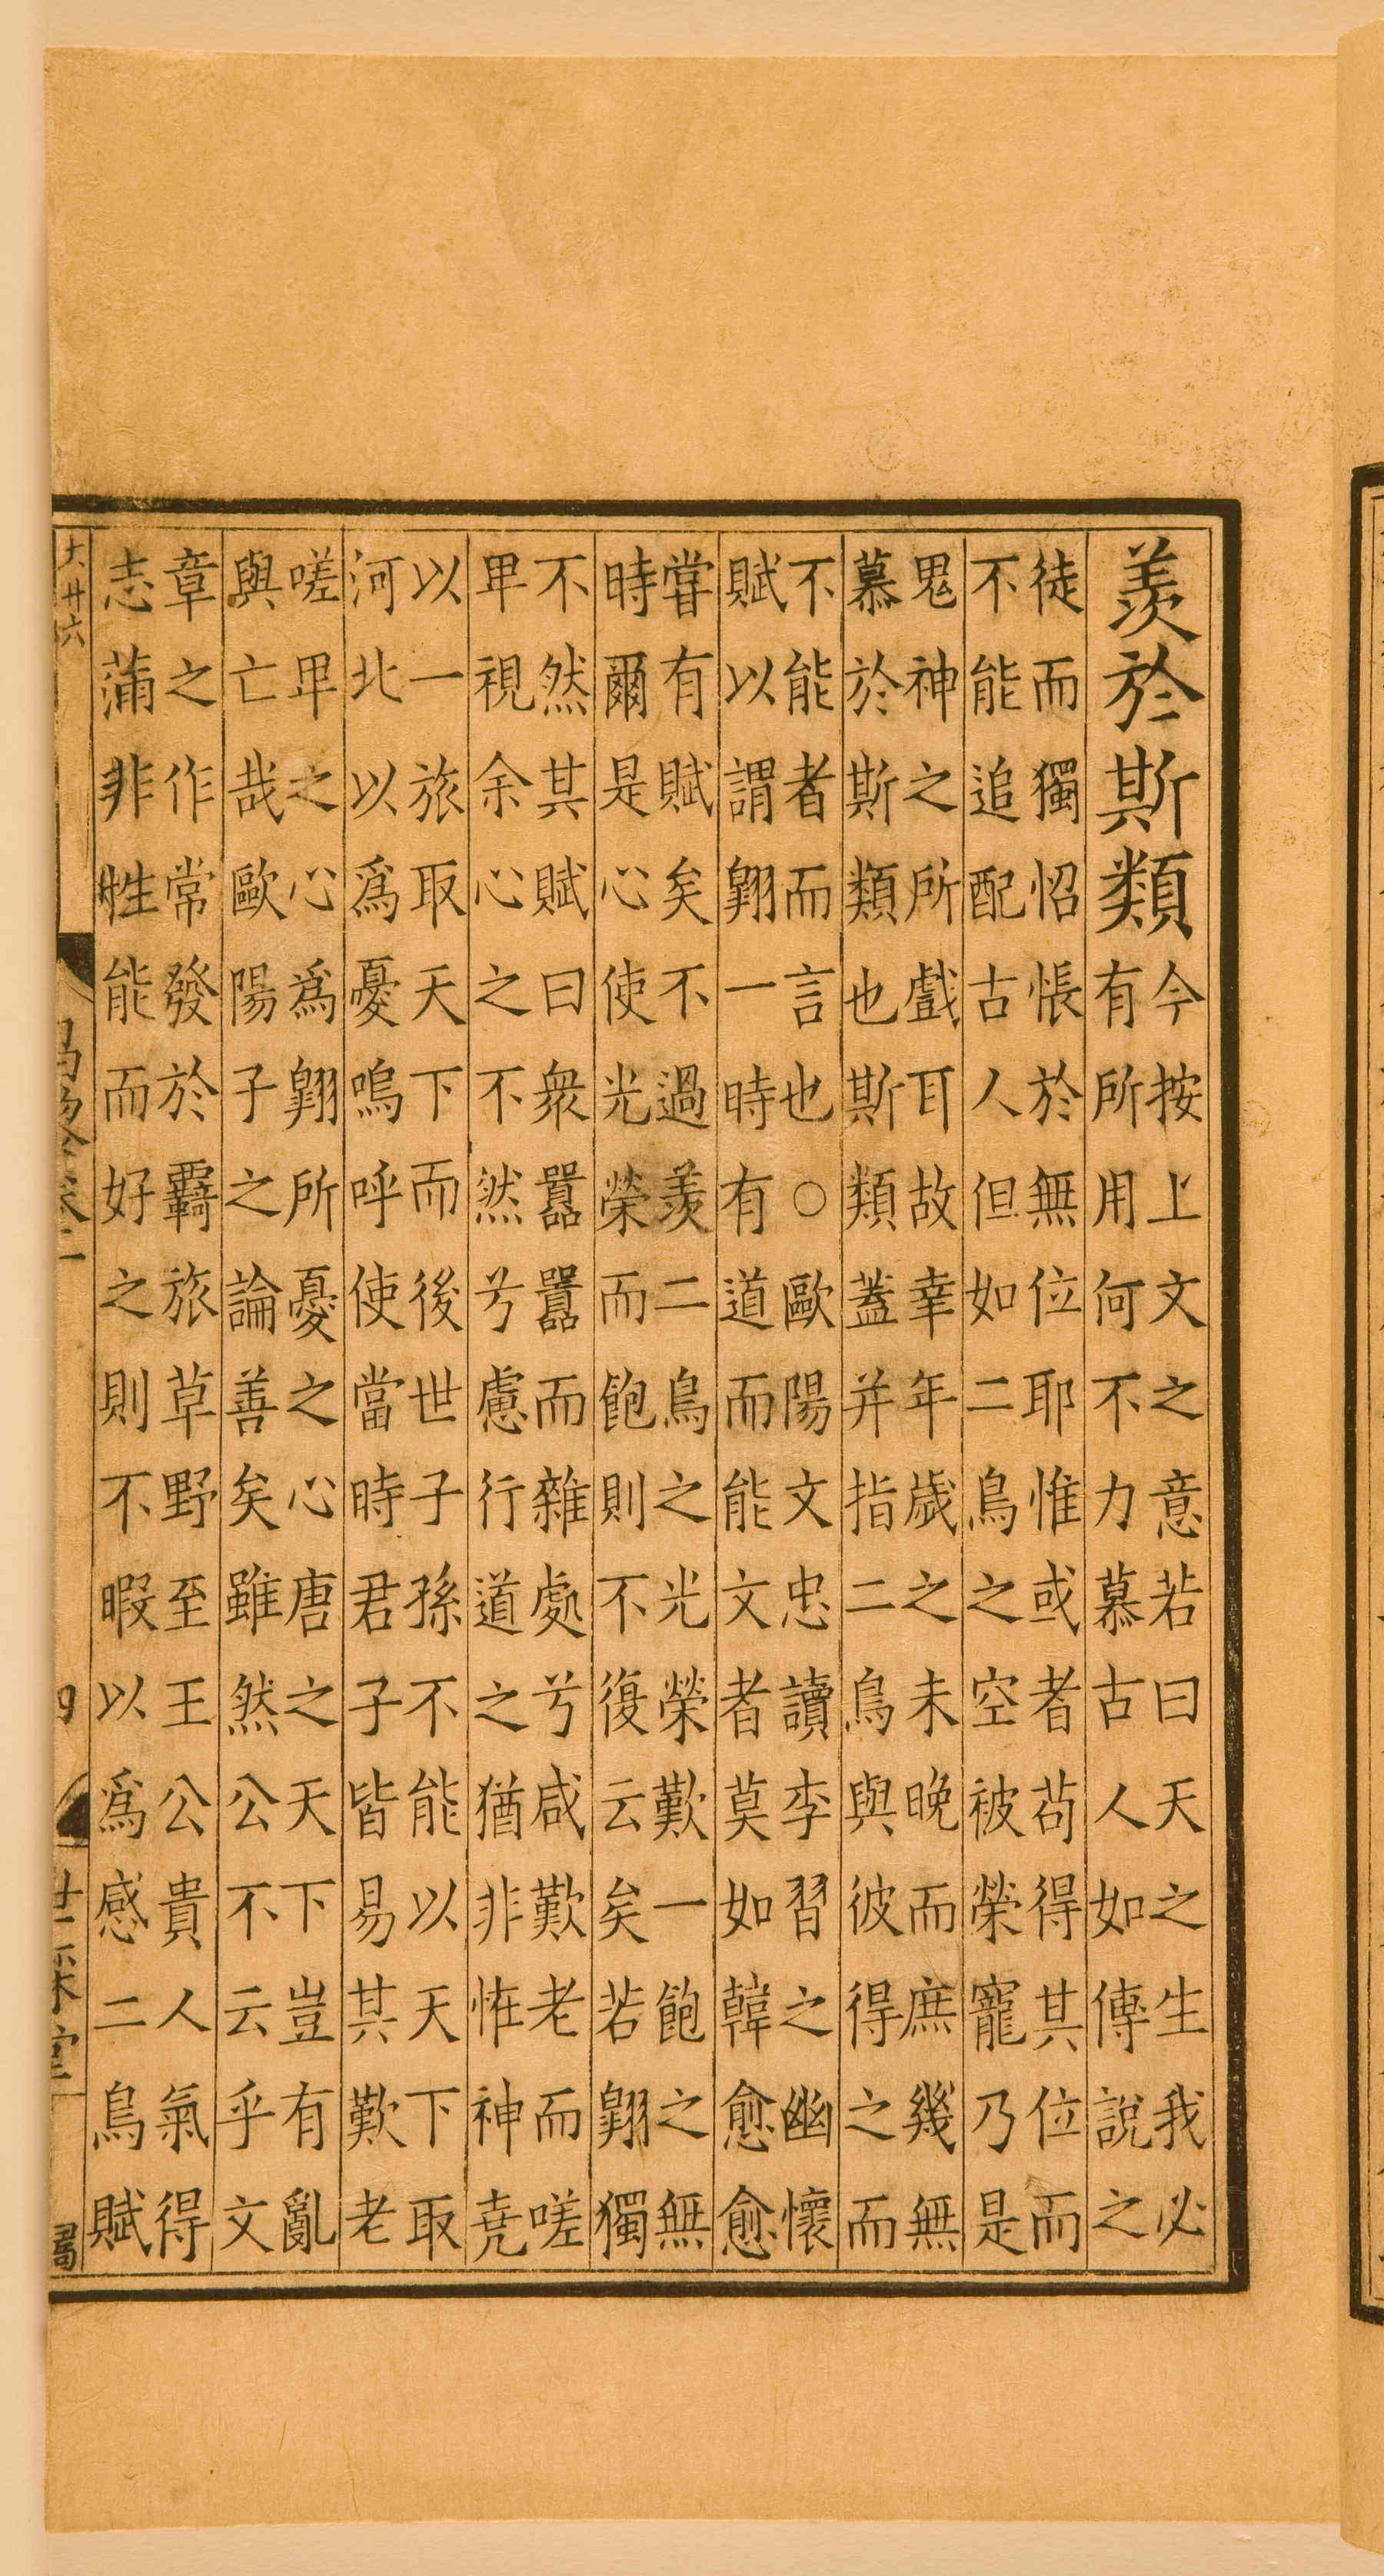 羨於斯類
今按上文之意若曰天之生我必
有所用何不力慕古人如傅說之
徒而獨怊悵於無位耶惟或者苟得其位而
不能追配古人但如二鳥之空被榮寵乃是
鬼神之所戲耳故幸年歲之未晚而庶幾無
慕於斯類也斯類蓋并指二鳥與彼得之而
不能者而言也○歐陽文忠讀李習之幽懷
賦以謂翺一時有道而能文者莫如韓愈愈
嘗有賦矣不過羨二鳥之光榮歎一飽之無
時爾是心使光榮而飽則不復云矣若翺獨
不然其賦曰衆囂囂而雜處兮咸歎老而嗟
卑視余心之不然兮慮行道之猶非恠神堯
以一旅取天下而後世子孫不能以天下取
河北以爲憂嗚呼使當時君子皆易其歎老
嗟卑之心爲翺所憂之心唐之天下豈有亂
與亡哉歐陽子之論善矣雖然公不云乎文
章之作常發於羇旅草野至王公貴人氣得
志蒲非性能而好之則不暇以爲感二鳥賦
大廿六